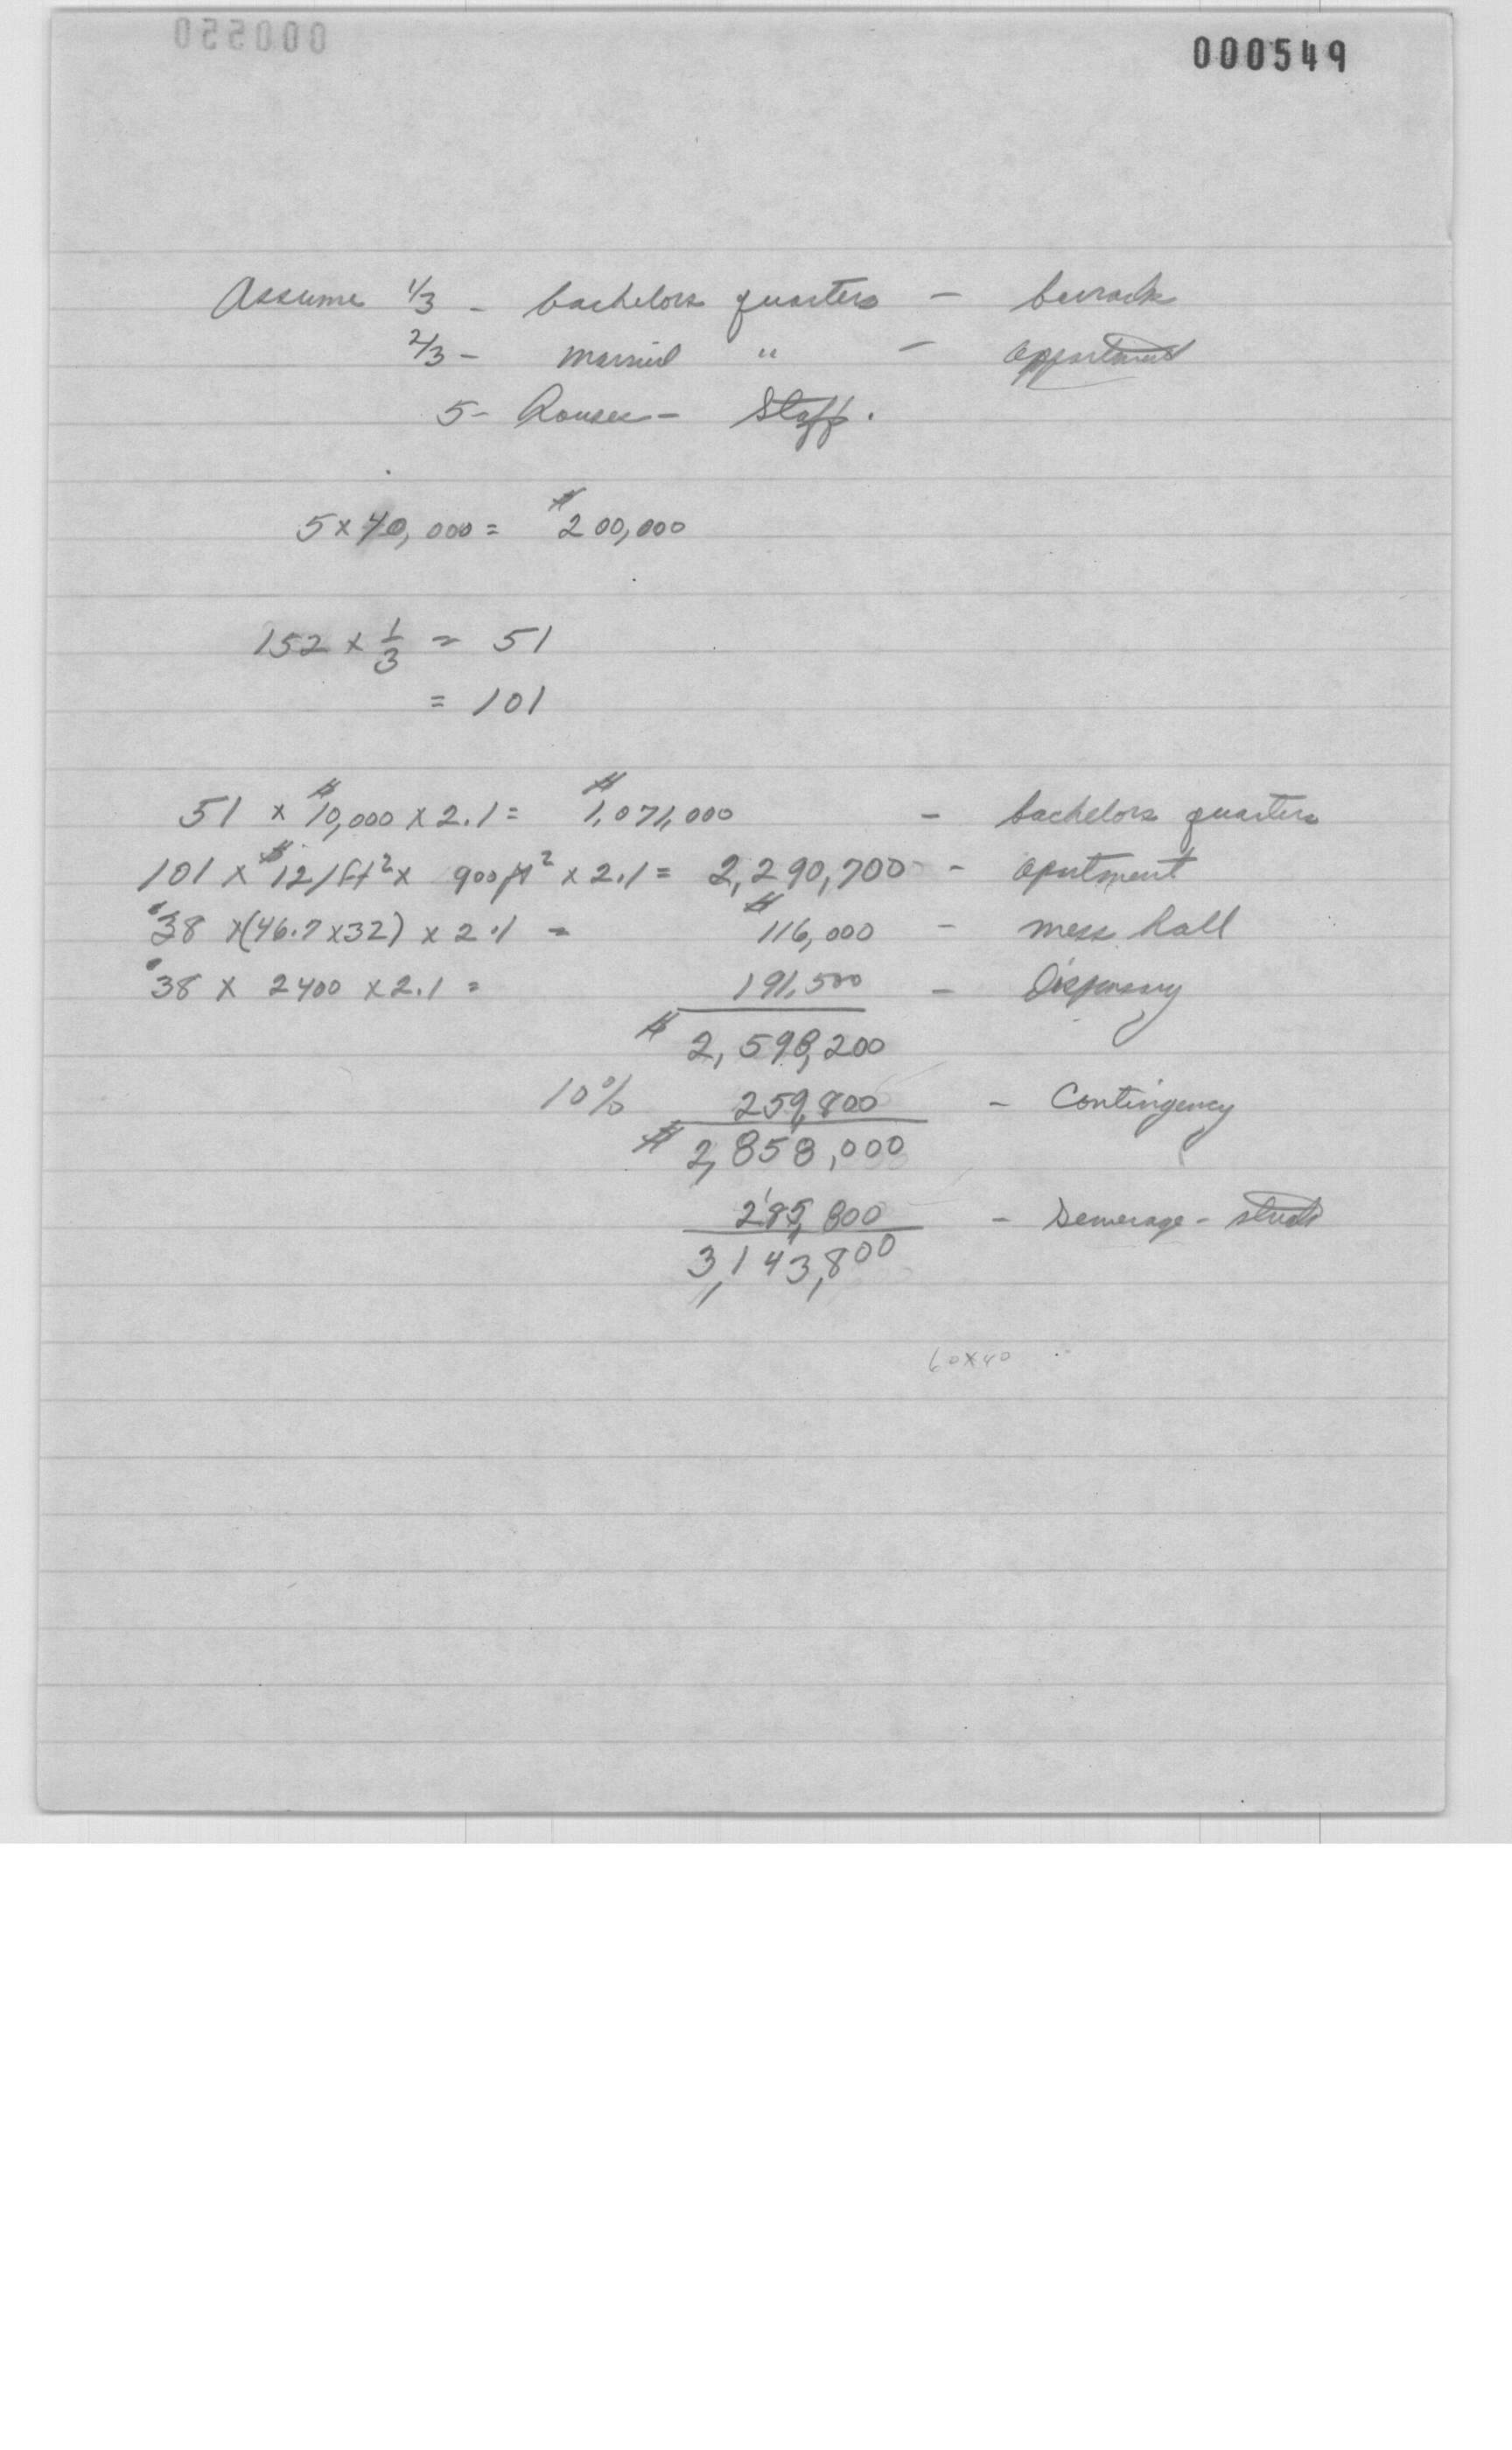 000550
000549
Assume 1/3 - bachelors quarters - barrack
2/3 - married " - appartment
5 - houses - Staff.
5 x 40,000 = $200,000
152 x 1/3 = 51
= 101
51 x $10,000 x 2.1 = $1,071,000 - bachelors quarters
101 x $12/ft² x 900 ft² x 2.1 = 2,290,700 - apartment
$38 x (46.7x32) x 2.1 = $116,000 - mess hall
$38 x 2400 x 2.1 = 191,500 - Dispensary
$2,598,200
10% 259,800 - Contingency
$2,858,000
285,800 - Demerage -
3,143,800
60x40